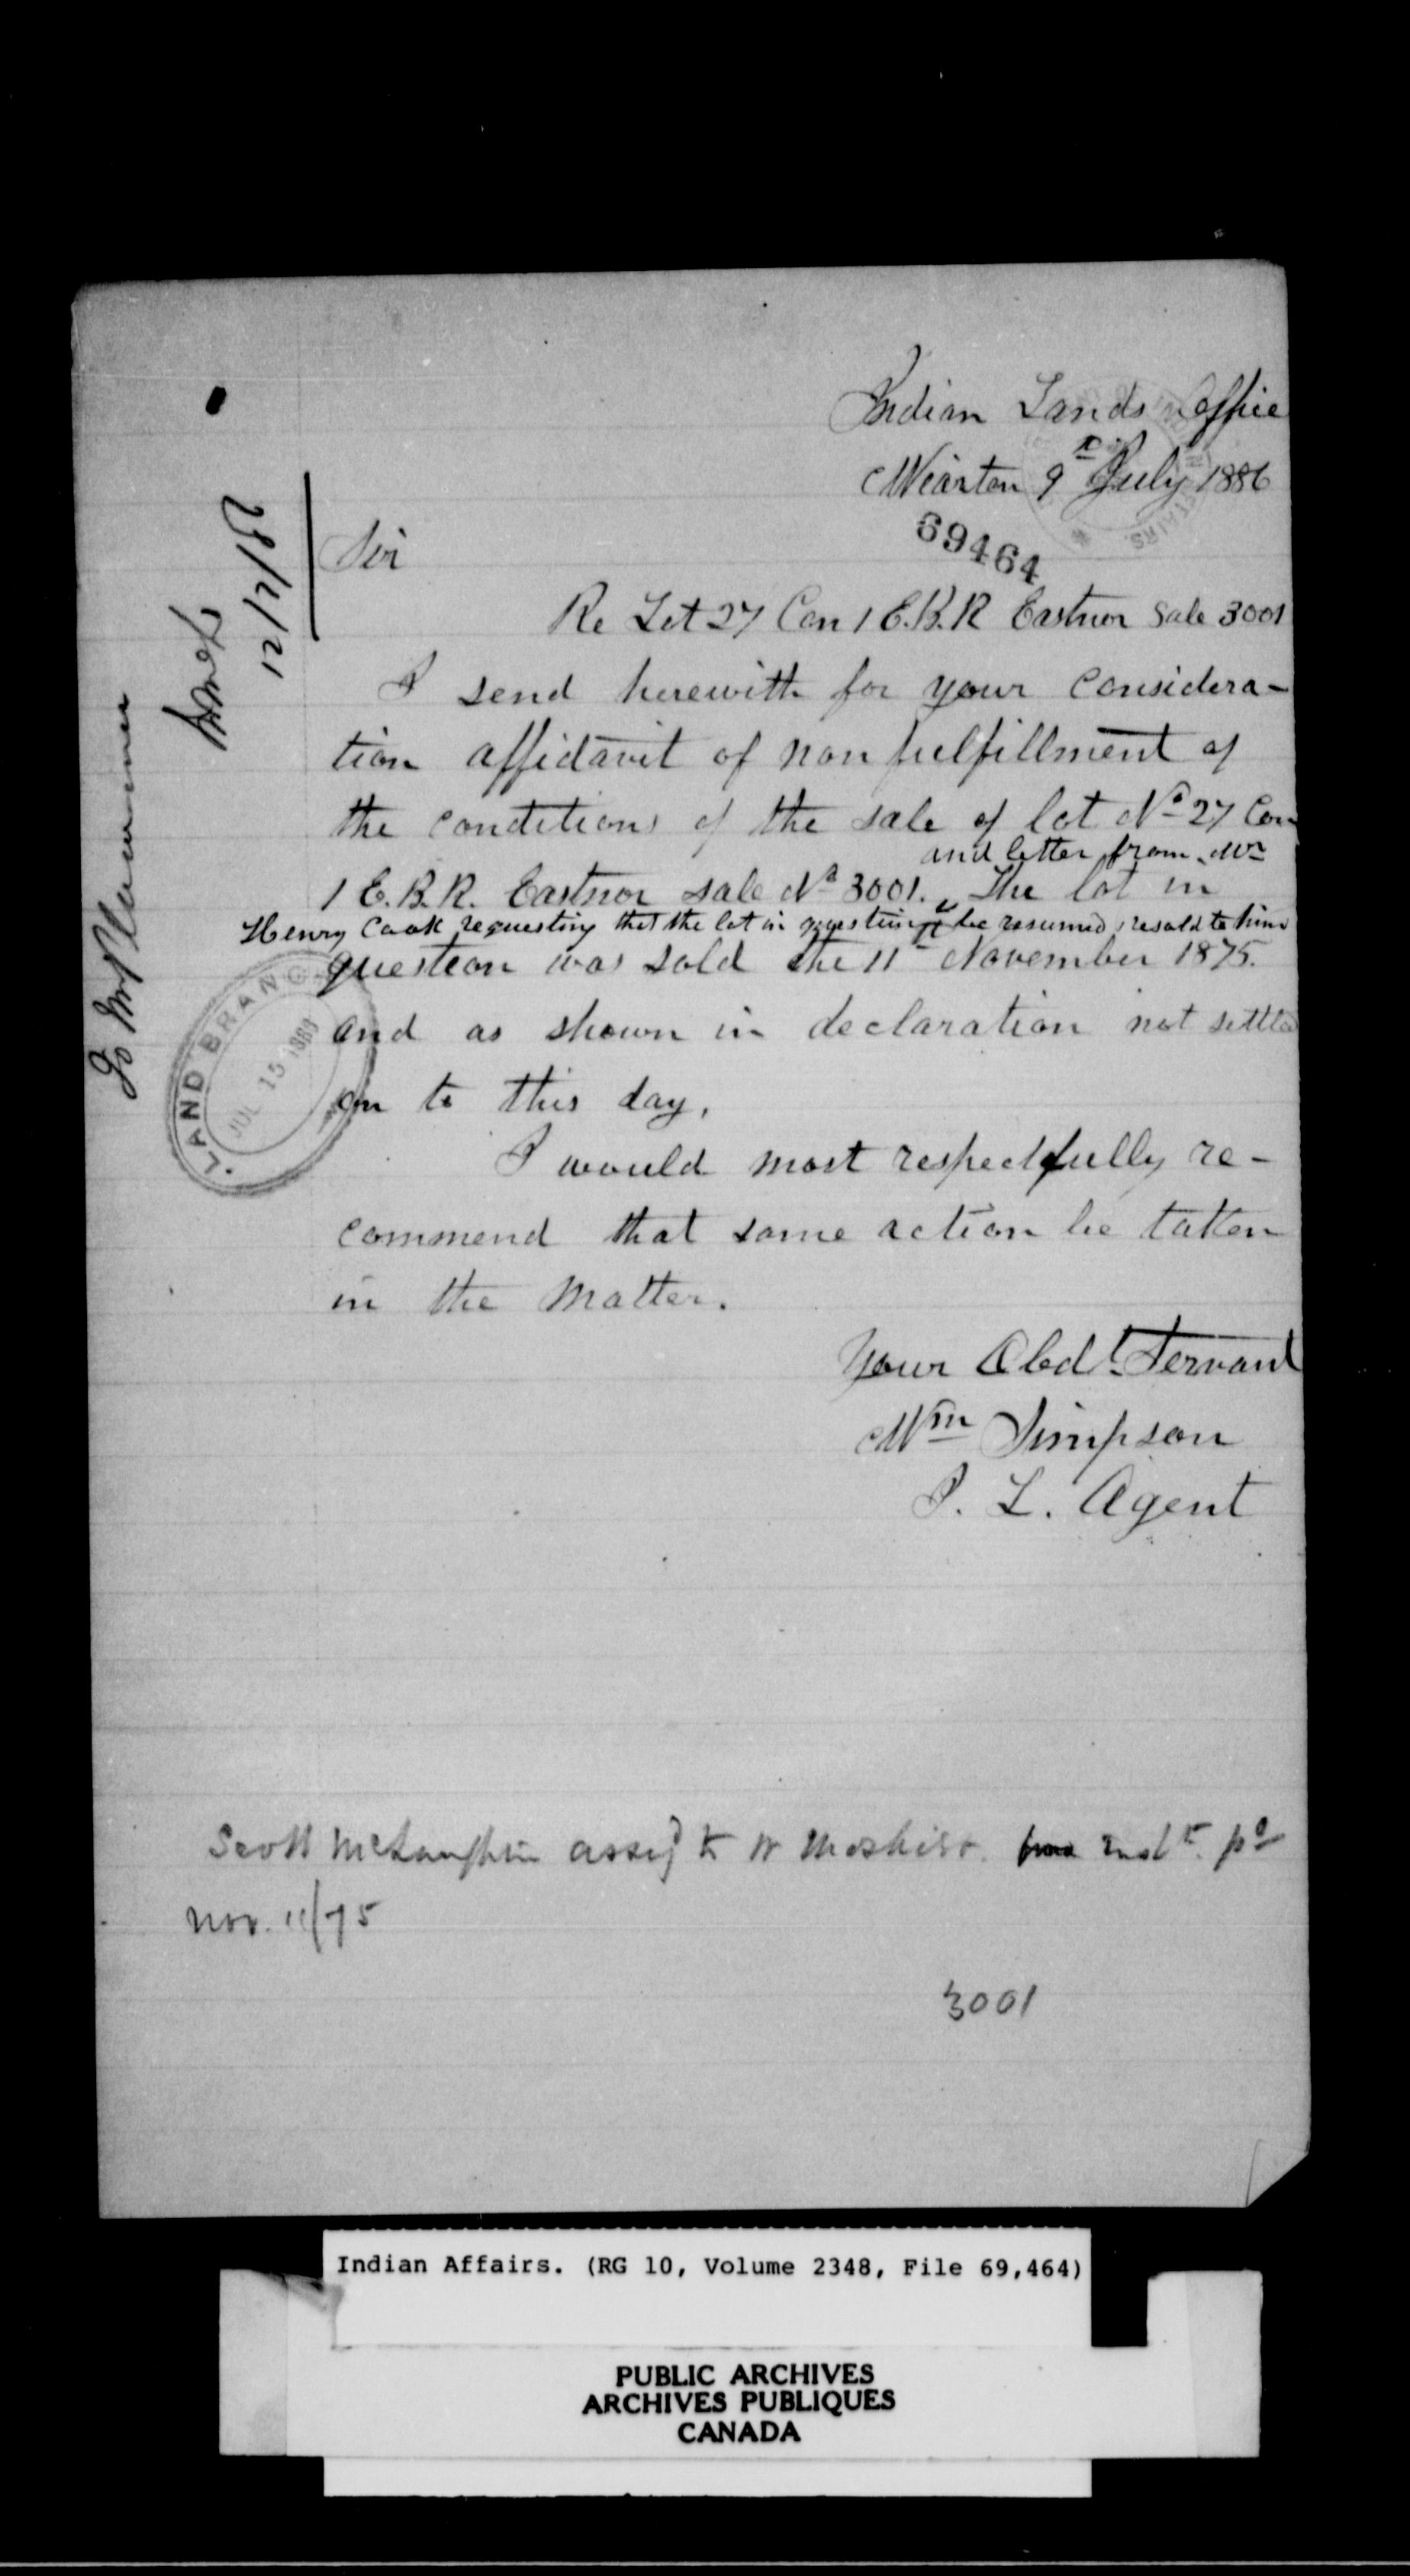 Indian Lands Office
Wiarton 9th July 1886
69464
Sir
Re Lot 27 Con 1 E.B.R Eastnor Sale 3001
I send herewith for your considera-
tion affidavit of non fulfillment of
the conditions of the sale of lot No 27 Con
and letter from Mr
1 E.B.R. Eastnor sale No 3001. The lot in
Henry Cook requesting that the lot in question be resumed & resold to him
question was sold the 11th November 1875.
and as shown in declaration not settled
on to this day.
I would most respectfully re-
commend that some action be taken
in the Matter.
Your Obdt Servant
Wm Simpson
I. L. Agent
To Mr Plummer
LAND BRANCH
JUL 15 188
Scott McLaughlin assigd to W Moshier. inst pd
Nov. 11/75
3001
Indian Affairs. (RG 10, Volume 2348, File 69,464)
PUBLIC ARCHIVES
ARCHIVES PUBLIQUES
CANADA